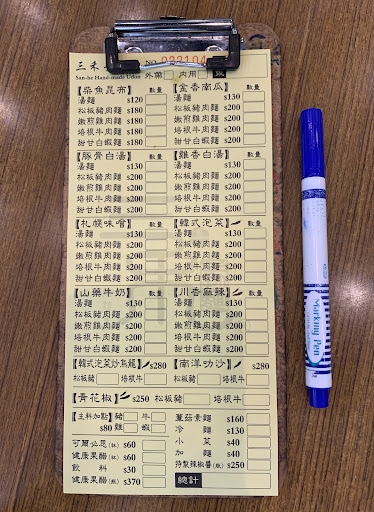 三禾
NO. 033104
San-he Hand-made Udon
外藥 內用
【柴魚昆布】 數量
湯麵 $120
松板豬肉麵 $180
嫩煎雞肉麵 $180
培根牛肉麵 $180
甜甘白蝦麵 $180
【金香南瓜】 數量
湯麵 $130
松板豬肉麵 $200
嫩煎雞肉麵 $200
培根牛肉麵 $200
甜甘白蝦麵 $200
【豚骨白湯】 數量
湯麵 $130
松板豬肉麵 $200
嫩煎雞肉麵 $200
培根牛肉麵 $200
甜甘白蝦麵 $200
【雞香白湯】 數量
湯麵 $130
松板豬肉麵 $200
嫩煎雞肉麵 $200
培根牛肉麵 $200
甜甘白蝦麵 $200
【札幌味噌】 數量
湯麵 $130
松板豬肉麵 $200
嫩煎雞肉麵 $200
培根牛肉麵 $200
甜甘白蝦麵 $200
【韓式泡菜】 數量
湯麵 $130
松板豬肉麵 $200
嫩煎雞肉麵 $200
培根牛肉麵 $200
甜甘白蝦麵 $200
【山藥牛奶】 數量
湯麵 $130
松板豬肉麵 $200
嫩煎雞肉麵 $200
培根牛肉麵 $200
甜甘白蝦麵 $200
【川香麻辣】 數量
湯麵 $130
松板豬肉麵 $200
嫩煎雞肉麵 $200
培根牛肉麵 $200
甜甘白蝦麵 $200
【韓式泡菜炒烏龍】 $280
松板豬 培根牛
【南洋叻沙】 $280
松板豬 培根牛
【青花椒】 $250 松板豬 培根牛
【主料加點】 豬 牛
$80 雞 蝦
可爾必思(杯) $60
健康果醋(杯) $60
飲料 $30
健康果醋(瓶) $370
蕈菇素麵 $160
冷麵 $130
小菜 $40
加麵 $40
特製辣椒醬(瓶) $250
總計
Marking Pen